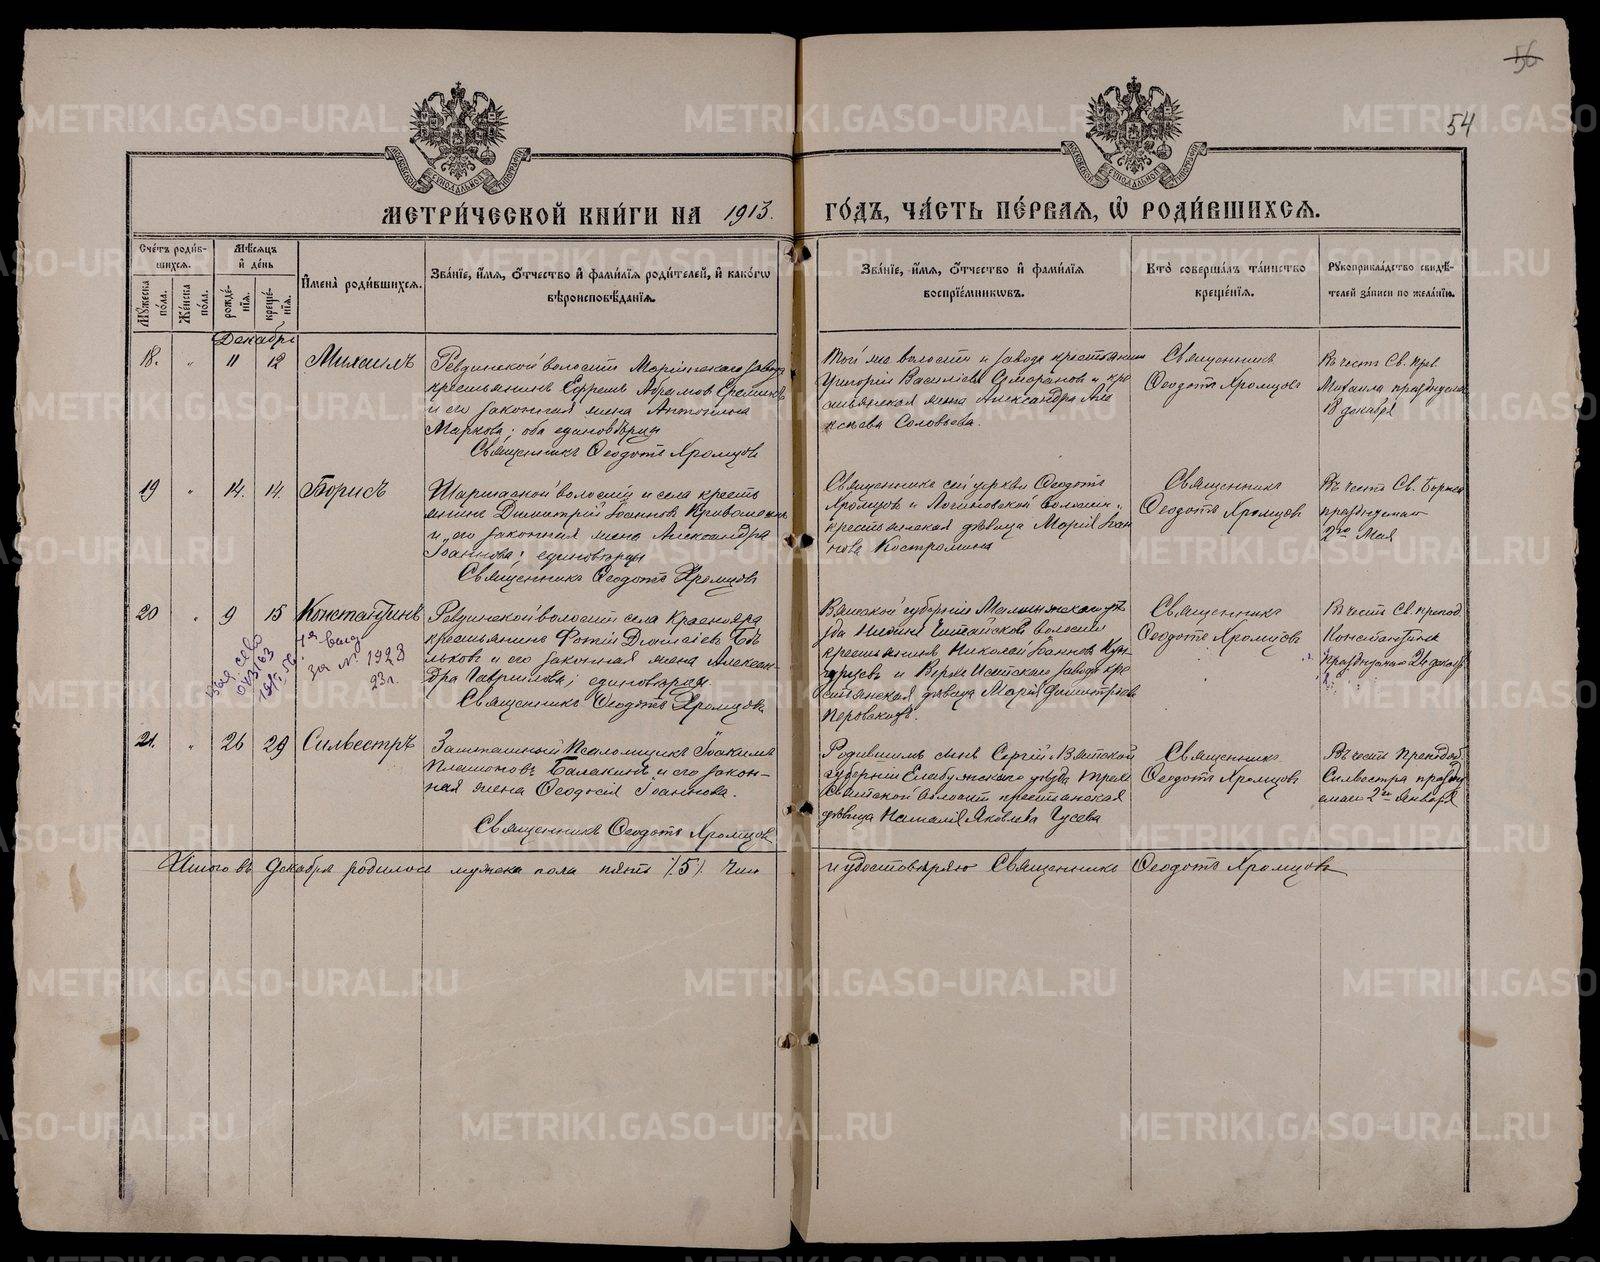 56
54
МЕТРИ́ЧЕСКОЙ КНИ́ГИ НА 1913. ГО́ДЪ, ЧА́СТЬ ПЕ́РВАЯ, Ѡ РОДИ́ВШИХСЯ.
Сче́тъ роди́в-
шихся.
Мꙋ́жеска по́ла.
Же́нска по́ла.
Мѣ́сяцъ
и҆ де́нь
рожде́-
нїя.
креще́-
нїя.
И҆мена̀ роди́вшихся.
Зва́нїе, и҆́мя, ѻ҆́тчество и҆ фами́лїя роди́телей, и҆ како́гѡ
вѣроисповѣ́данїя.
Зва́нїе, и҆́мя, ѻ҆́тчество и҆ фами́лїя
воспрїе́мникѡвъ.
Кто̀ соверша́лъ та́инство
креще́нїя.
Рꙋкоприкла́дство свидѣ́-
телей за́писи по жела́нїю.
Декабрь
18. " 11 12 Михаилъ
Ревдинской волости Марiинскаго завода
крестьянинъ Ефремъ Абрамовъ Еремин
и его законная жена Антонина
Маркова; оба единовѣрцы
Священникъ Ѳеодотъ Хромцовъ
Той же волости и завода крестьянин
Григорiй Васильевъ и кре
стьянская жена Александра Але
ксѣева Соловьева.
Священникъ
Ѳеодотъ Хромцовъ
Въ честь Св. прп.
Михаила празднуема
18 декабря
19 " 14. 14. Борисъ
волости и села кресть
янинъ Димитрiй Iоанновъ
и его законная жена Александра
Iоаннова; единовѣрцы
Священникъ Ѳеодотъ Хромцовъ
Священникъ сей церкви Ѳеодотъ
Хромцовъ и волости
крестьянская дѣвица Марiя Iоан
нова Костромина
Священникъ
Ѳеодотъ Хромцовъ
Въ честь Св. Бориса
празднуемаго
2го Мая
20 " 9 15 Константинъ
Ревдинской волости села Краснояра
крестьянинъ Фотiй Дiонисiевъ Бѣ
льковъ и его законная жена Алексан
дра Гаврилова; единовѣрцы.
Священникъ Ѳеодотъ Хромцовъ
за № 1928
23 г.
Вятской губернiи Малмыжскаго уѣ
зда волости
крестьянинъ Николай Iоанновъ
и Верхъ Исетскаго завода кре
стьянская дѣвица Марiя Димитрiева
Священникъ
Ѳеодотъ Хромцовъ
Въ честь Св. препод.
Константина
празднуемаго 26 декабря
21. " 26 29 Силвестръ
Заштатный Псаломщикъ Iоакимъ
Платоновъ Балакинъ и его закон-
ная жена Ѳеодосiя Iоаннова.
Священникъ Ѳеодотъ Хромцовъ
сынъ Сергiй и Вятской
губернiи Елабужскаго уѣзда
волости крестьянская
дѣвица Наталiя Яковлева Гусева
Священникъ
Ѳеодотъ Хромцовъ
Въ честь Преподоб.
Силвестра праздну
емаго 2го Января
Итого въ Декабрѣ родилось мужска пола пять /5/. Чт
и удостовѣряю Священникъ Ѳеодотъ Хромцовъ